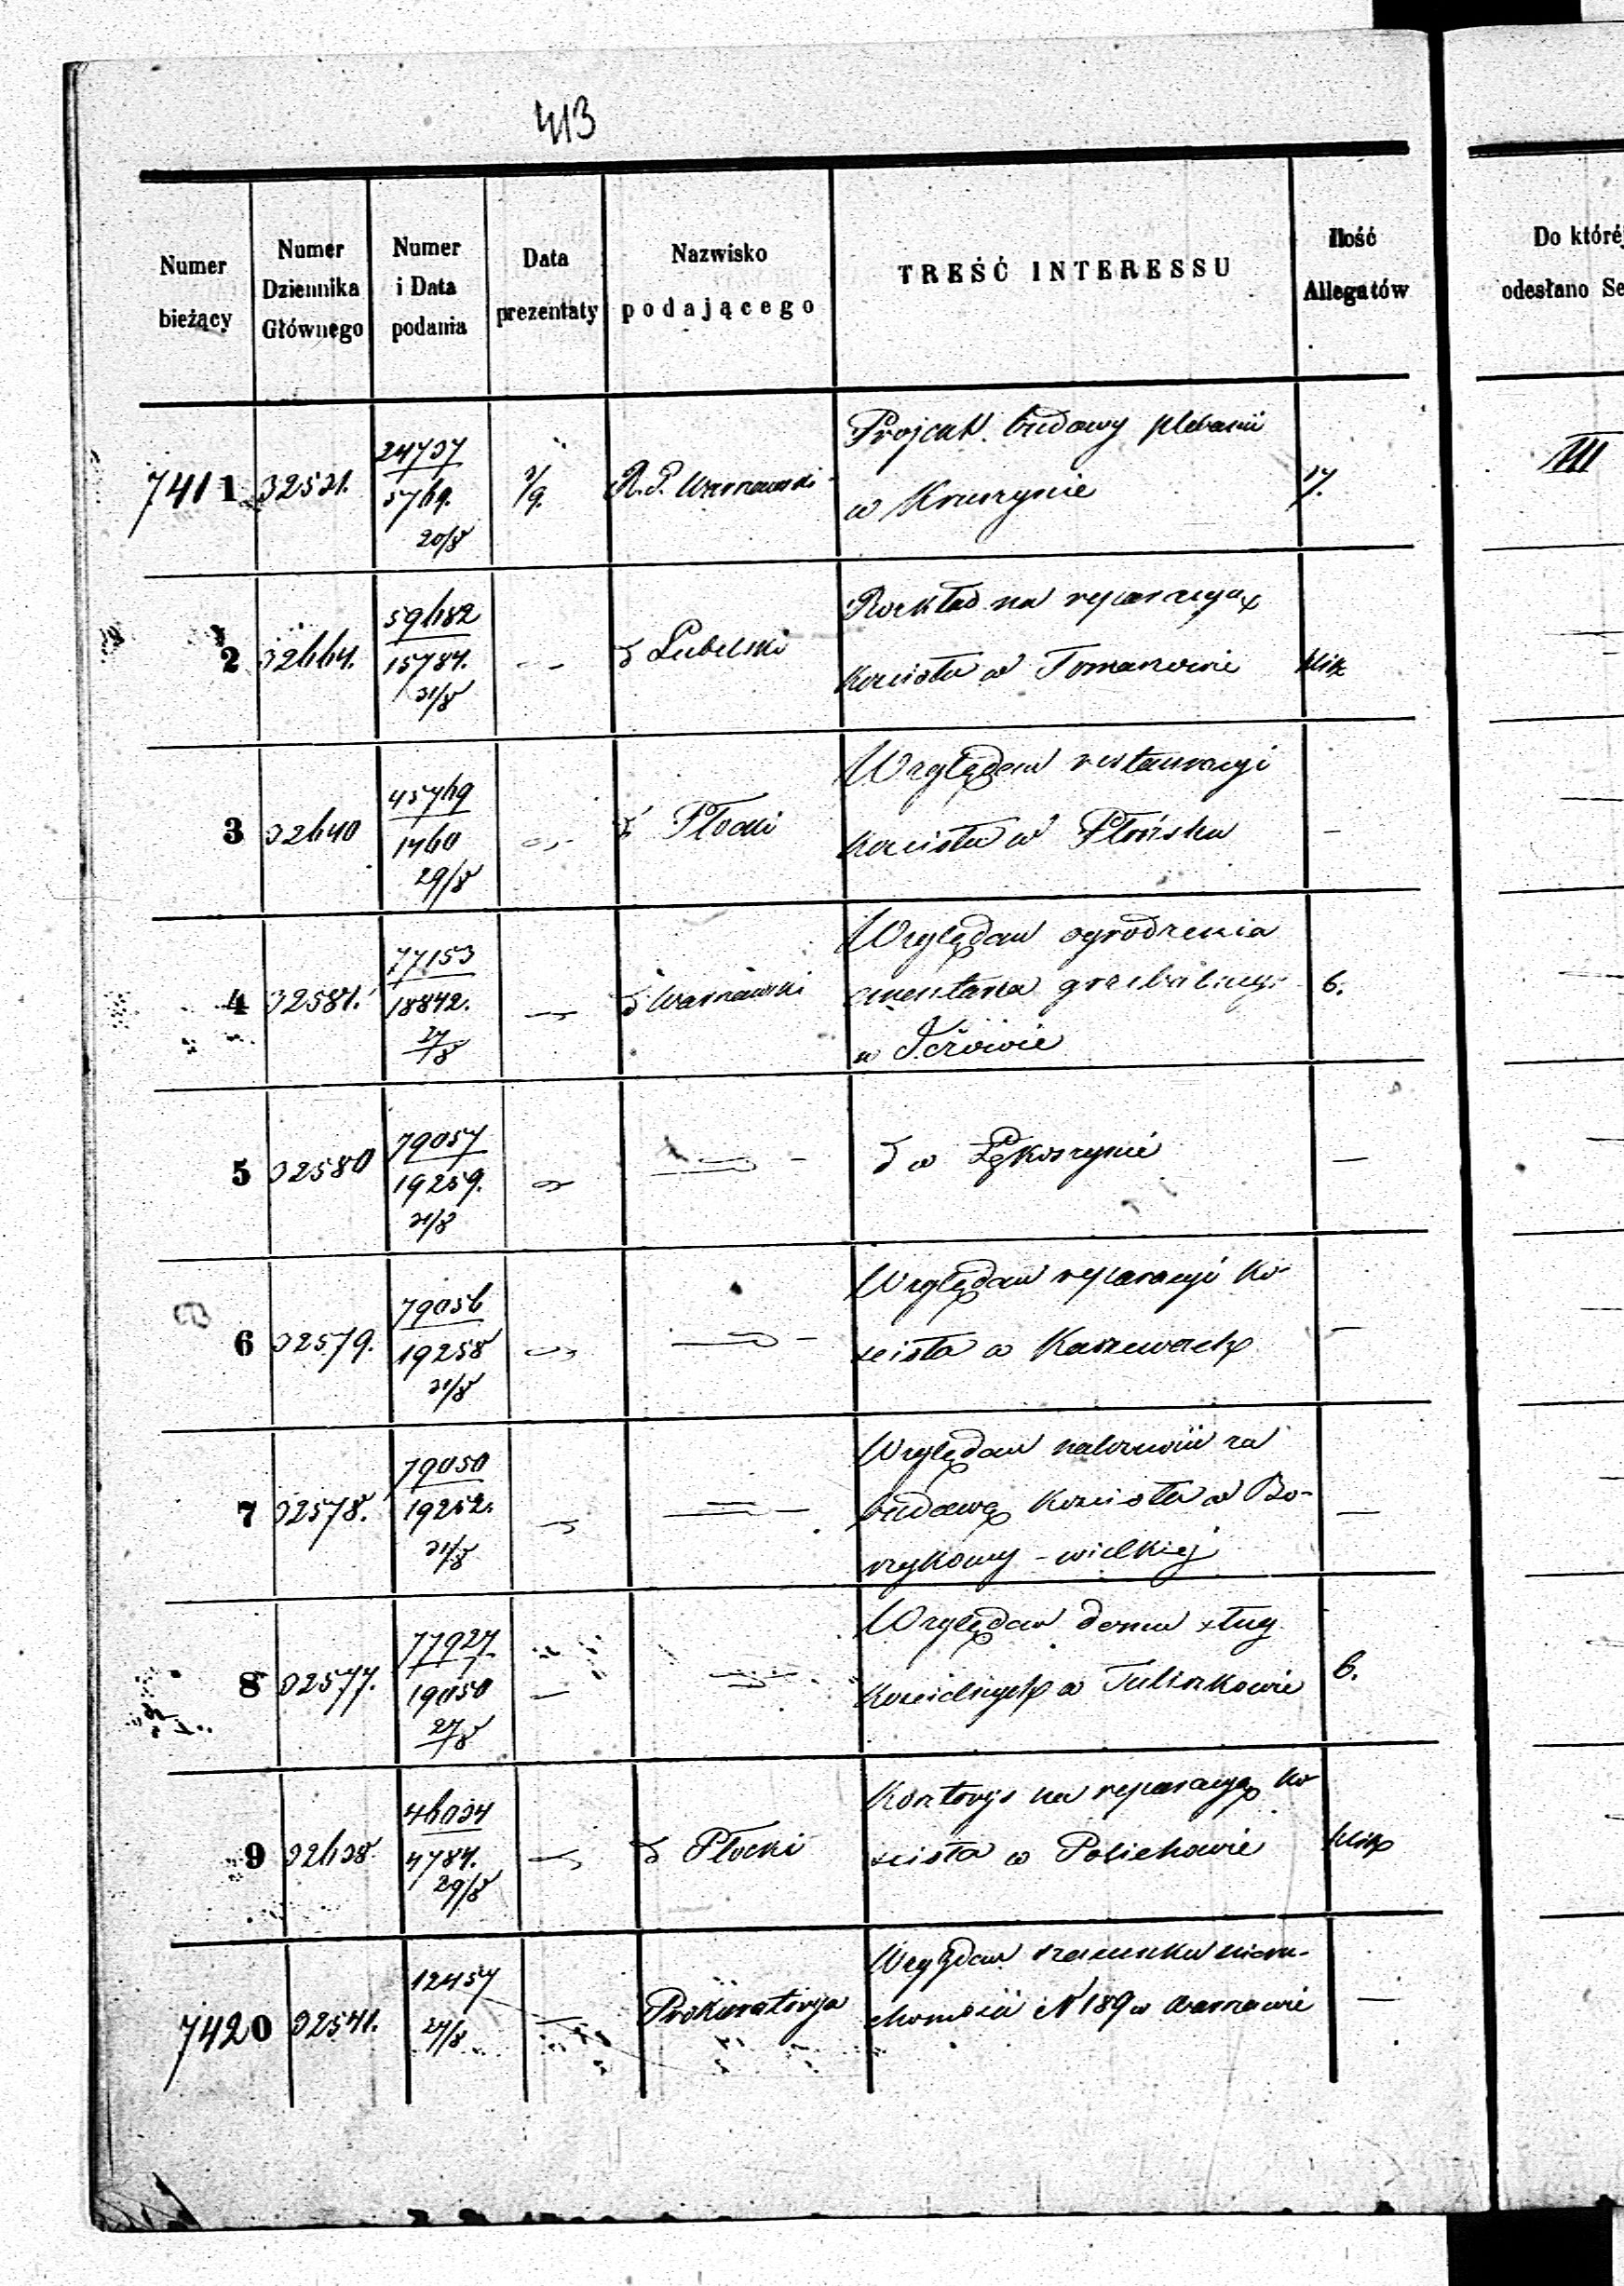 413
Numer bieżący
Numer Dziennika Głównego
Numer i Data podania
Data prezentaty
Nazwisko podającego
TREŚĆ INTERESSU
Ilość Allegatów
Do której
odesłano Se
7411 32521. 24737 5769. 20/8 3/9. R. G. Warszawski Projekt budowy plebanii
w Kruszynie 17. III
2 32664. 59682 15784. 31/8 — d Lubelski Rozkład na reparacyą
kościoła w Tomaszowie klik
3 32640 45769 1760 29/8 d Płocki Względem restauracyi
kościoła w Płońsku —
4 32581. 77153 18842. 27/8 — d Warszawski Względem ogrodzenia
cmentarza grzebalnego 6.
w
5 32580 79057 19259. 31/8 — d w Łękoszynie —
6 32579. 79056 19258 31/8 — Względem reparacyi ko-
ścioła w Kaszewach —
7 32578. 79050 19252. 31/8 — Względem należności za
budowę kościoła w Bo-
rzykowy - wielkiej —
8 32577. 77927 19050 27/8 — Względem domu sług
kościelnych w Tuliszkowie 6.
9 32638 46034 4784. 29/8 — d Płocki Kosztorys na reparacyą ko-
ścioła w Polichowie klik
7420 32541. 12457 27/8 — Prokuratorya Względem szacunku nieru-
chomości N 189 w Warszawie —